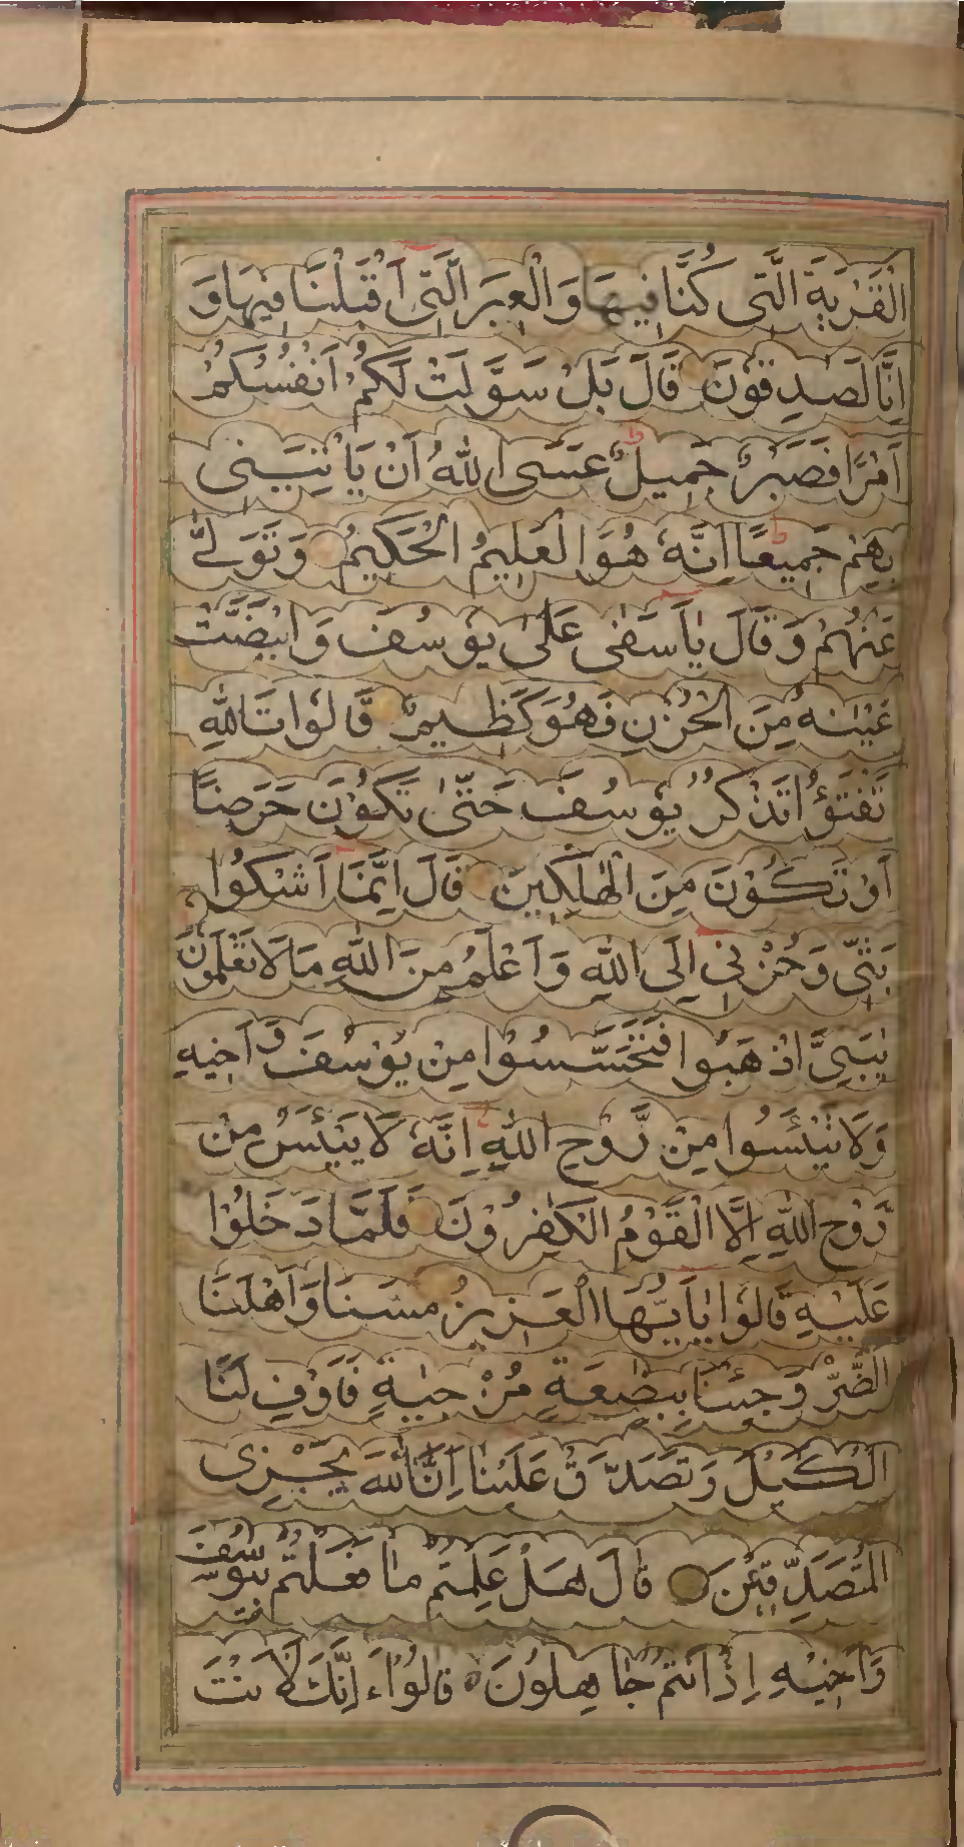 الْقَرْيَةَ الَّتِى كُنَّا فِيهَا وَ الْعِيرَ الَّتِى اَقْبَلْنَا فِيهَا وَ
اِنَّا لَصٰدِقُوْنَ قَالَ بَلْ سَوَّلَتْ لَكُمْ اَنْفُسُكُمْ
اَمْرًا فَصَبْرٌ جَمِيلٌ عَسَى اللّٰهُ اَنْ يَاْتِيَنِى
بِهِمْ جَمِيعًا اِنَّهٗ هُوَ الْعَلِيمُ الْحَكِيمُ وَ تَوَلّٰى
عَنْهُمْ وَ قَالَ يٰاَسَفٰى عَلٰى يُوْسُفَ وَ ابْيَضَّتْ
عَيْنٰهُ مِنَ الْحُزْنِ فَهُوَ كَظِيمٌ قَالُوا تَاللّٰهِ
تَفْتَؤُا تَذْكُرُ يُوْسُفَ حَتّٰى تَكُوْنَ حَرَضًا
اَوْ تَكُوْنَ مِنَ الْهٰلِكِينَ قَالَ اِنَّمَا اَشْكُوا
بَثِّى وَ حُزْنِى اِلَى اللّٰهِ وَ اَعْلَمُ مِنَ اللّٰهِ مَا لَا تَعْلَمُوْنَ
يٰبَنِىَّ اذْهَبُوا فَتَحَسَّسُوْا مِنْ يُوْسُفَ وَ اَخِيهِ
وَ لَا تَيْئَسُوا مِنْ رَّوْحِ اللّٰهِ اِنَّهٗ لَا يَيْئَسُ مِنْ
رَّوْحِ اللّٰهِ اِلَّا الْقَوْمُ الْكٰفِرُوْنَ فَلَمَّا دَخَلُوْا
عَلَيْهِ قَالُوْا يٰاَيُّهَا الْعَزِيزُ مَسَّنَا وَ اَهْلَنَا
الضُّرُّ وَ جِئْنَا بِبِضٰعَةٍ مُّزْجٰيةٍ فَاَوْفِ لَنَا
الْكَيْلَ وَ تَصَدَّقْ عَلَيْنَا اِنَّ اللّٰهَ يَجْزِى
الْمُتَصَدِّقِيْنَ قَالَ هَلْ عَلِمْتُمْ مَا فَعَلْتُمْ بِيُوْسُفَ
وَ اَخِيْهِ اِذْ اَنْتُمْ جَاهِلُوْنَ قَالُوْا ءَاِنَّكَ لَاَنْتَ